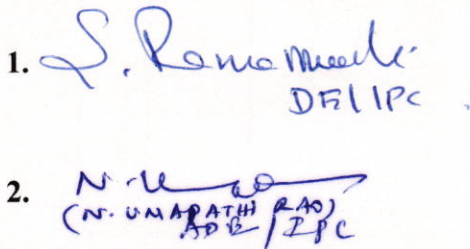 1. S. Ramamurthi
DE/IPC
2. N. U
(N. UMAPATHI RAO)
ADE/IPC